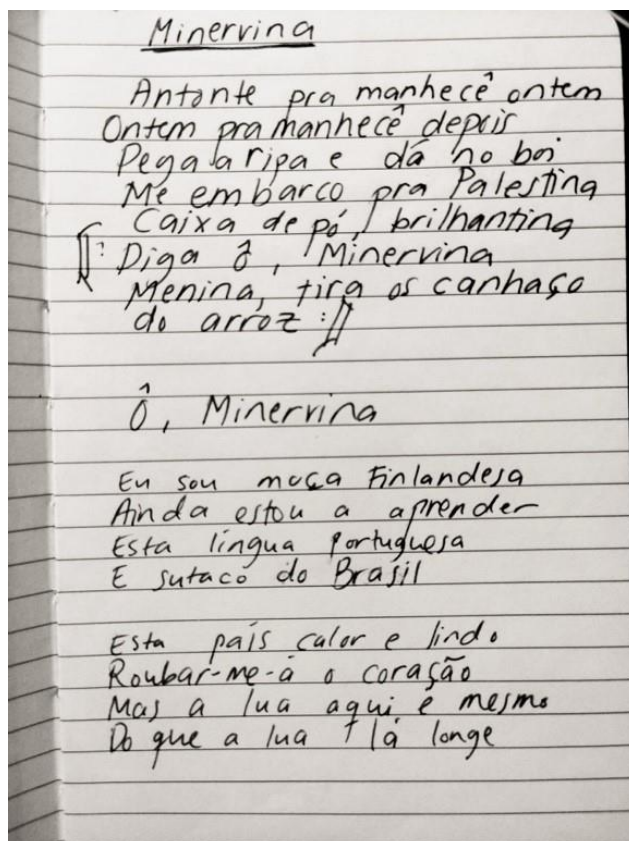 Minervina
Antonte pra manhecê ontem
Ontem pra manhecê depois
Pega a ripa e dá no boi
Me embarco pra Palestina
Caixa de pó, brilhantina
‖: Diga ô, Minervina
Menina, tira os canhaço
do arroz :‖
Ô, Minervina
Eu sou moça Finlandesa
Ainda estou a aprender
Esta língua portuguesa
E sutaco do Brasil
Esta país calor e lindo
Roubar-me-á o coração
Mas a lua aqui e mesmo
Do que a lua lá longe